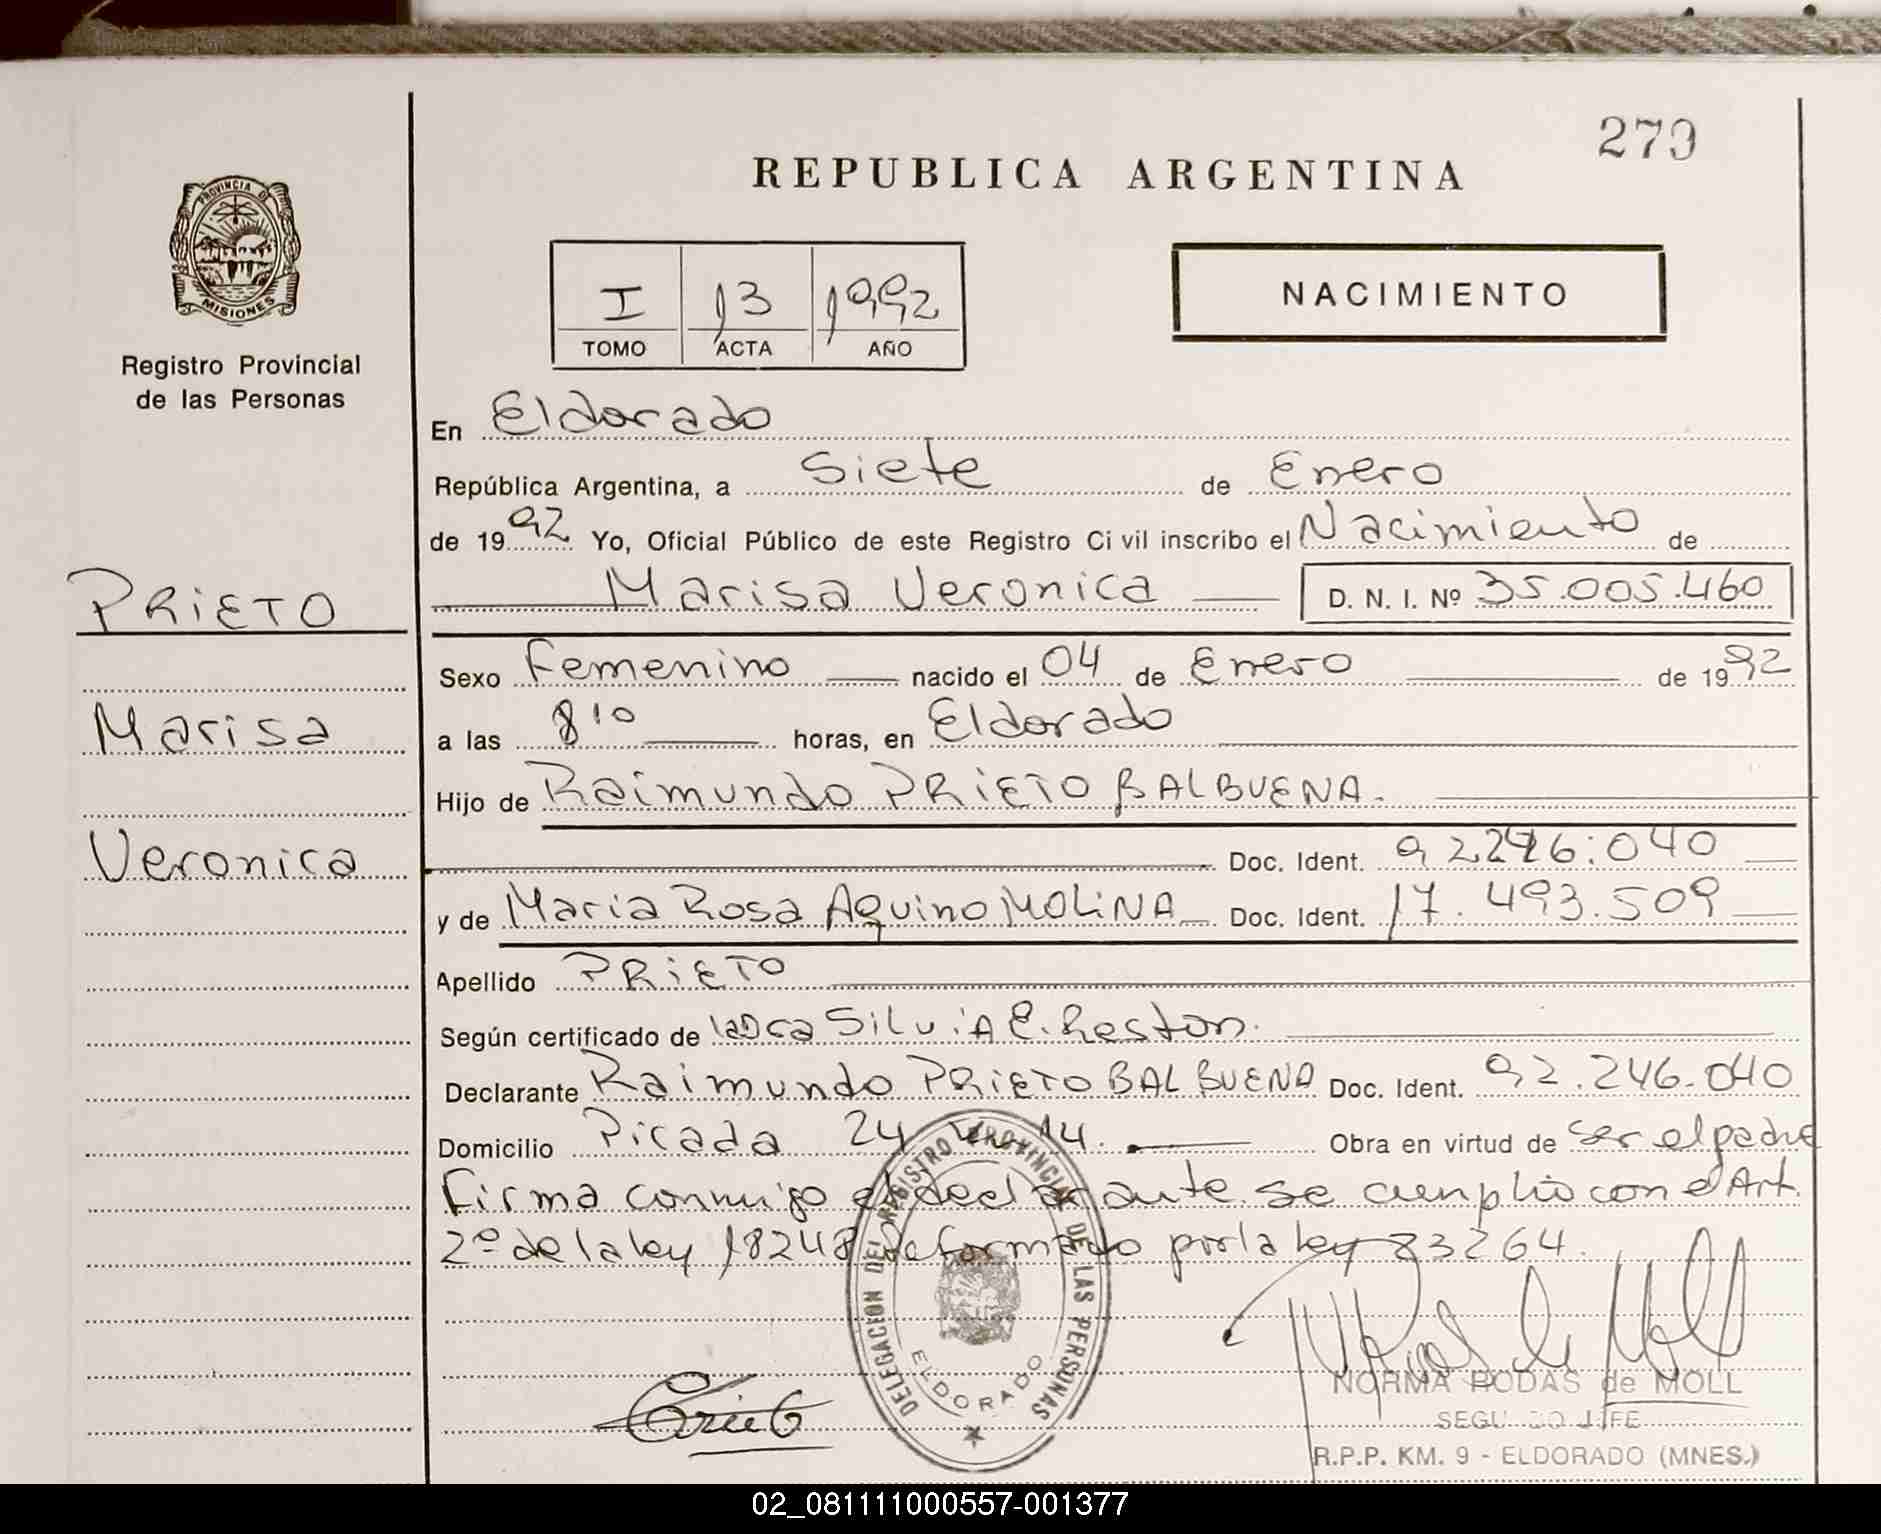 279
REPUBLICA ARGENTINA
PROVINCIA DE
MISIONES
I 13 1992
TOMO ACTA AÑO
NACIMIENTO
Registro Provincial
de las Personas
En Eldorado
República Argentina, a Siete de Enero
de 1992 Yo, Oficial Público de este Registro Civil inscribo el Nacimiento de
Marisa Veronica D. N. I. Nº 35.005.460
PRIETO
Marisa
Veronica
Sexo Femenino nacido el 04 de Enero de 1992
a las 8 10 horas, en Eldorado
Hijo de Raimundo PRIETO BALBUENA.
Doc. Ident. 92246.040
y de Maria Rosa Aquino MOLiNA Doc. Ident. 17.493.509
Apellido PRIETO
Según certificado de la Dra Silvia E. Reston.
Declarante Raimundo PRIETO BALBUENA Doc. Ident. 92.246.040
Domicilio Picada 24 14. Obra en virtud de ser el padre
firma conmigo el declarante. se cumplio con el Art.
2º de la ley 18248 reformado por la ley 23264.
DELEGACION DEL REGISTRO PROVINCIAL DE LAS PERSONAS
ELDORADO
NORMA RODAS de MOLL
SEGUNDO JEFE
R.P.P. KM. 9 - ELDORADO (MNES.)
02_081111000557-001377